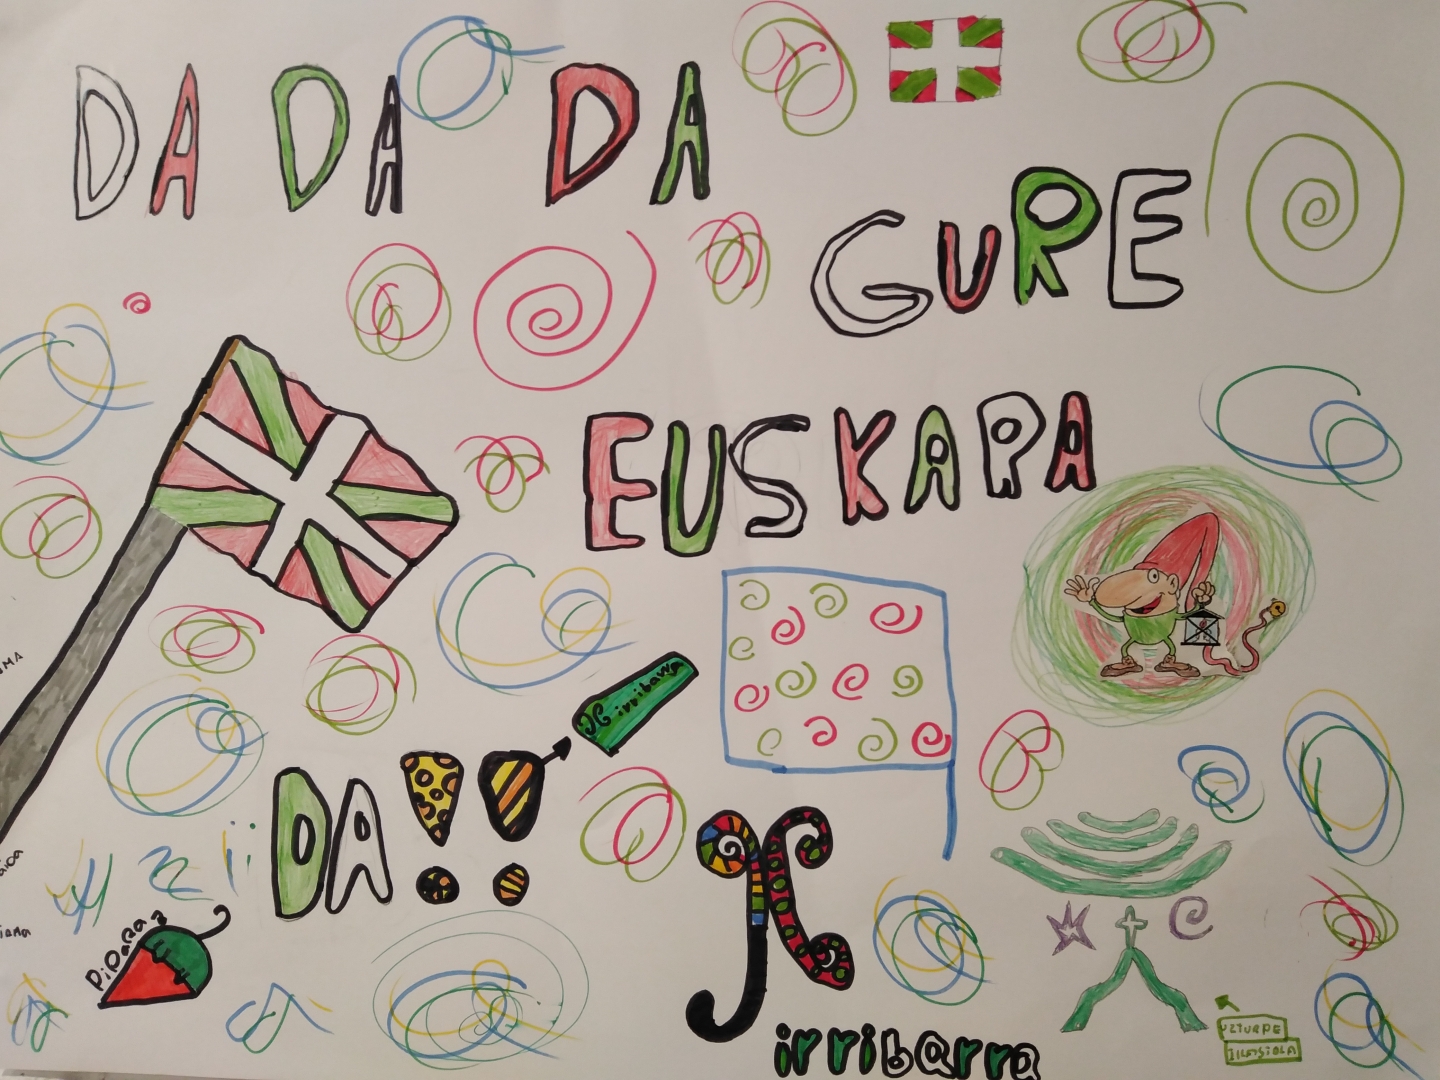 DA DA DA
GURE
EUSKARA
DA!!
irribarra
PiPARRA
irribarra
UZTURPE
IKASTOLA